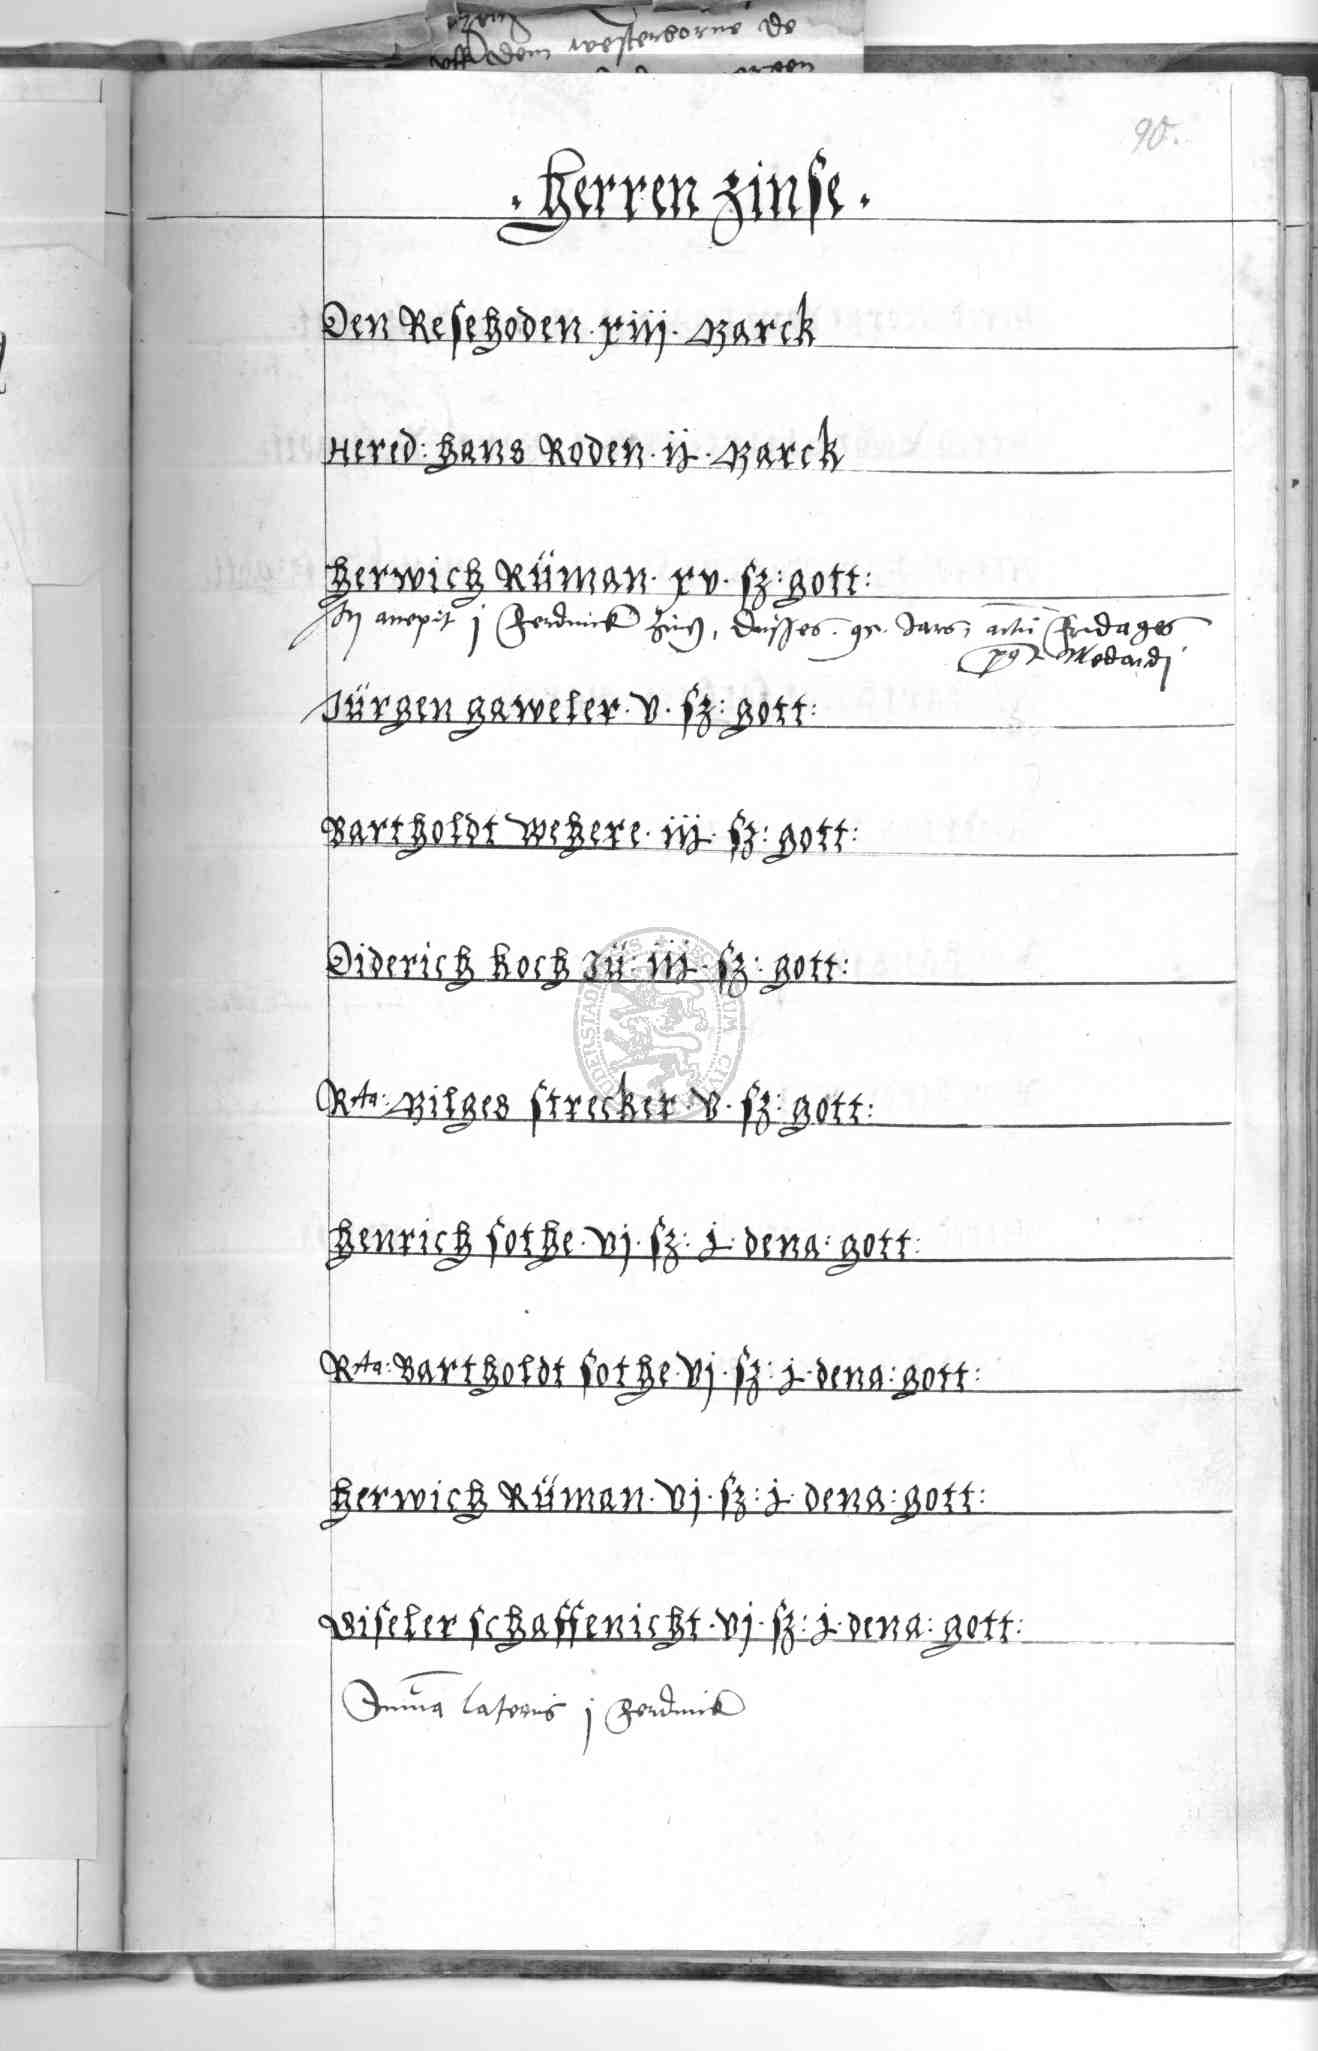 uff dem westerborne de
90.
. Herren zinse .
Den Resehoden . xiiij . Marck
Hered: hans Roden . ij . Marck
Herwich Rüman . xv . sz: gott:
j ferdinck zins, disses . 95 . Jars, actum Fridages
post Medardi
Jürgen gaweler . v . sz: gott:
Bartholdt Wehere . iij . sz: gott:
Diderich Koch Jü: iij . sz: gott:
Rta: Hilges strecker . v . sz: gott:
Henrich sothe . vj . sz: j . dena: gott:
Rta: Bartholdt sothe . vj . sz: j . dena: gott:
Herwich Rüman . vj . sz: j . dena: gott:
Giseler schaffenicht . vj . sz: j . dena: gott:
Summa lateris j ferdinck